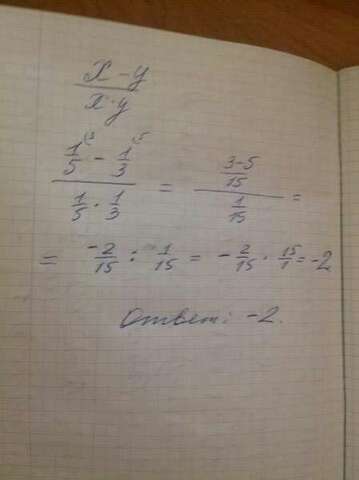 x - y
x · y
1/5 (3 - 1/3 (5
1/5 · 1/3
= (3-5)/15
1/15 =
= -2/15 : 1/15 = -2/15 · 15/1 = -2
Ответ: -2.